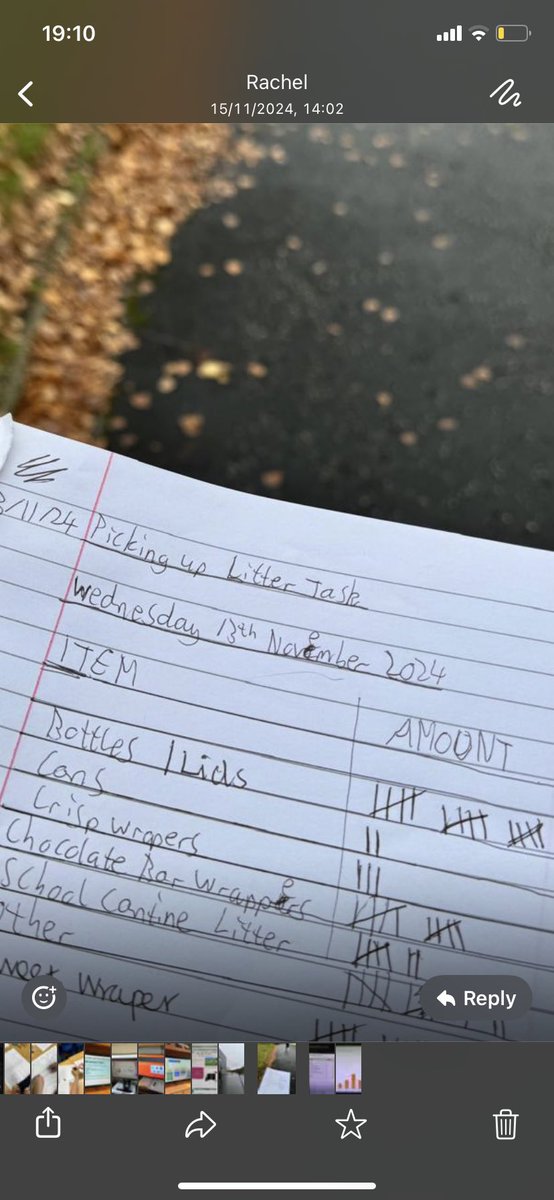 19:10
Rachel
15/11/2024, 14:02
/11/24 Picking up Litter Task
Wednesday 13th November 2024
ITEM AMOUNT
Bottles / Lids
Cans
Crisp wrapers
Chocolate Bar Wrappers
School Cantine Litter
other
wraper
Reply